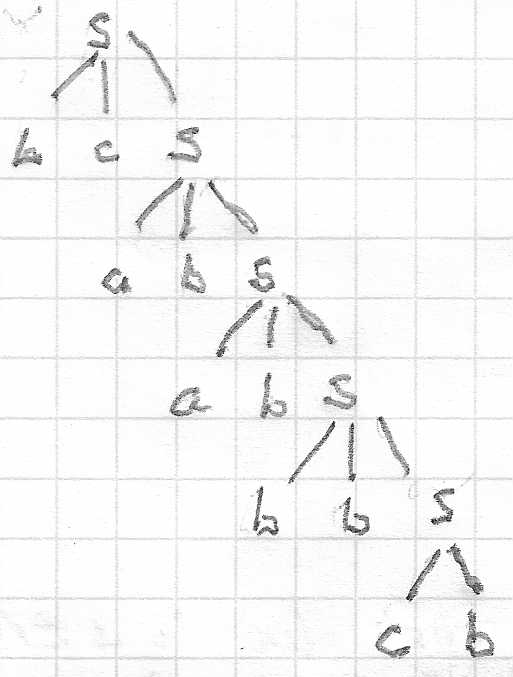 S
b c S
a b S
a b S
b b S
c b